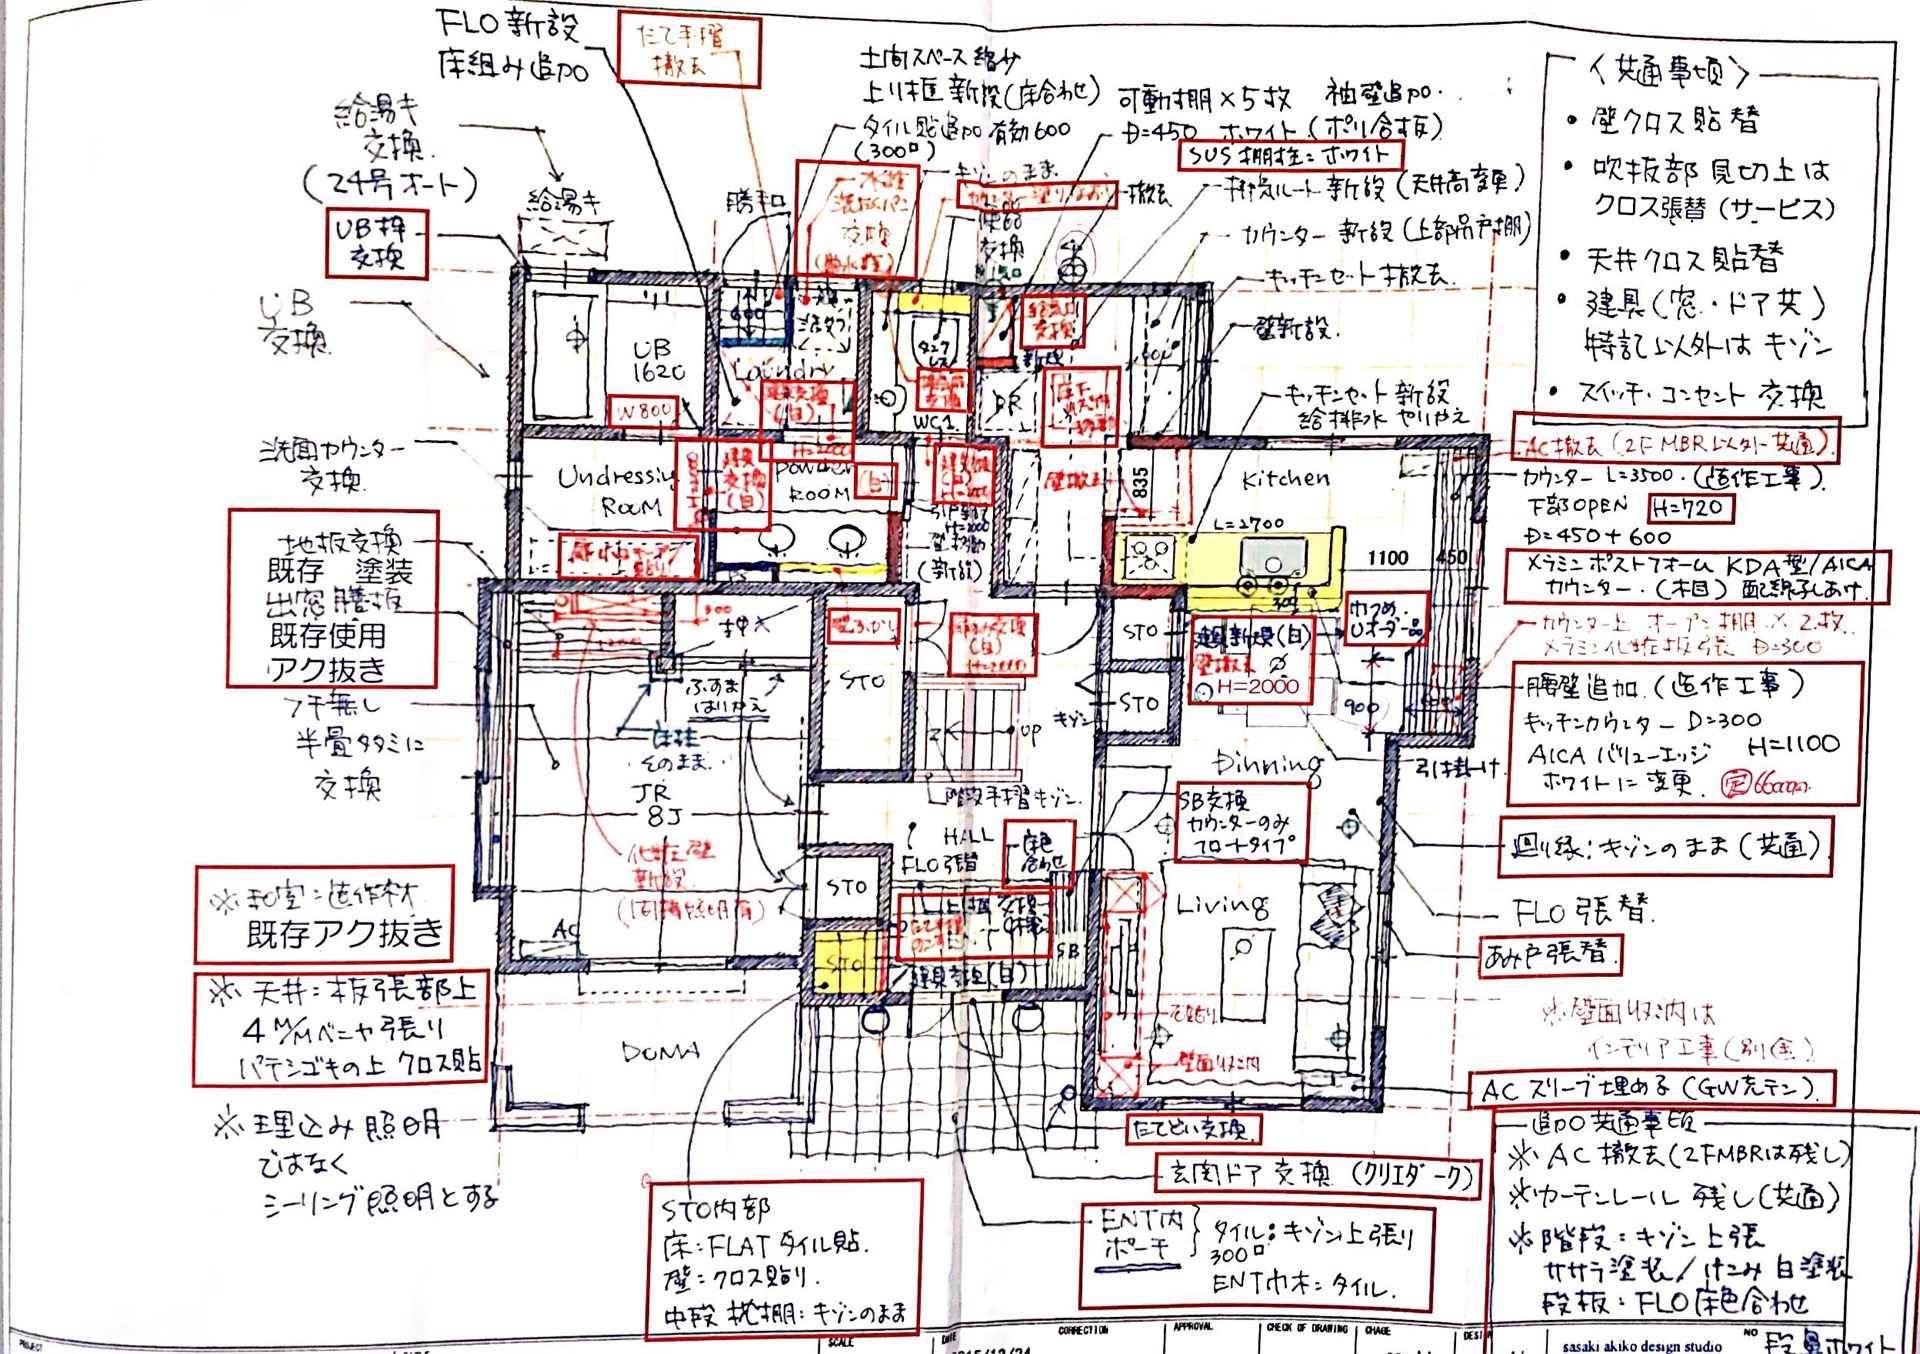 FLO 新設
床組み追加
たて手摺
撤去
給湯キ
交換
(24号オート)
給湯キ
UB枠
交換
UB
交換
勝手口
土間スペース縮少
上り框新設(床合わせ)
タイル貼追加 有効600
(300□)
キゾンのまま
可動棚×5枚 袖壁追加
D=450 ホワイト(ポリ合板)
SUS棚柱=ホワイト
撤去
排気ルート新設(天井高変更)
カウンター新設(上部吊戸棚)
キッチンセット撤去
壁新設
キッチンセット新設
給排水やりかえ
〈共通事項〉
・壁クロス貼替
・吹抜部見切上は
クロス張替(サービス)
・天井クロス貼替
・建具(窓・ドア共)
特記以外はキゾン
・スイッチ・コンセント交換
水栓
洗濯パン
交換
便器
交換
給気口
交換
UB
1620
W800
Laundry
WC1
洗面カウンター
交換
Undressing
ROOM
建具
交換
(白)
Powder
ROOM
(白)
H=2000
壁撤去
835
Kitchen
L=2700
1100
450
AC撤去(2F MBR以外共通)
カウンター L=3500 (造作工事)
下部OPEN H=720
D=450+600
メラミンポストフォーム KDA型/AICA
カウンター (木目) 配線孔あけ
カウンター上 オープン棚×2枚
メラミン化粧板張 D=300
腰壁追加(造作工事)
キッチンカウンター D=300
AICA バリューエッジ H=1100
ホワイトに変更
地板交換
既存 塗装
出窓膳板
既存使用
アク抜き
フチ無し
半畳タタミに
交換
300
押入
ふすま
はりかえ
そのまま
JR
8J
STO
壁ふかし
UP
階段手摺キゾン
STO
STO
キゾン
壁撤去
H=2000
900
Dinning
引掛け
SB交換
カウンターのみ
フロートタイプ
廻り縁:キゾンのまま(共通)
FLO 張替
あみ戸張替
HALL
FLO張替
床色
合わせ
化粧壁
新設
STO
AC
STO
SB
Living
※和室:造作材
既存アク抜き
※天井:板張部上
4M/Mベニヤ張り
パテシゴキの上 クロス貼
※埋込み照明
ではなく
シーリング照明とする
DOMA
壁面収納
※壁面収納は
インテリア工事(別途)
ACスリーブ埋める(GW充テン)
たてどい交換
玄関ドア交換(クリエダーク)
STO内部
床:FLATタイル貼
壁:クロス貼り
中段枕棚:キゾンのまま
ENT内
ポーチ
タイル:キゾン上張り
300□
ENT巾木:タイル
追加共通事項
※AC撤去(2FMBRは残し)
※カーテンレール残し(共通)
※階段:キゾン上張
ササラ塗装/けこみ白塗装
段板:FLO床色合わせ
段鼻ホワイト
PROJECT
SCALE
DATE
CORRECTION
APPROVAL
CHECK OF DRAWING
CHAGE
sasaki akiko design studio
NO